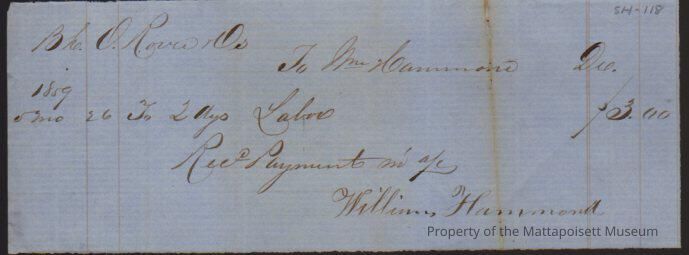 SH-118
Bk. O. & Os
To Wm Hammond Dr.
1859
5 mo 26 To 2 dys Labor $3.00
Recd Payment in a/c
William Hammond
Property of the Mattapoisett Museum